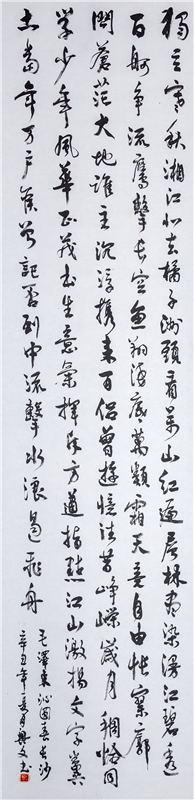 獨立寒秋湘江北去橘子洲頭看萬山紅遍層林盡染漫江碧透
百舸爭流鷹擊長空魚翔淺底萬類霜天競自由悵寥廓
問蒼茫大地誰主沉浮攜來百侶曾遊憶往昔崢嶸歲月稠恰同
學少年風華正茂書生意氣揮斥方遒指點江山激揚文字糞
土當年万戶侯曾記否到中流擊水浪遏飛舟
毛澤東沁園春長沙
辛丑年月興文書